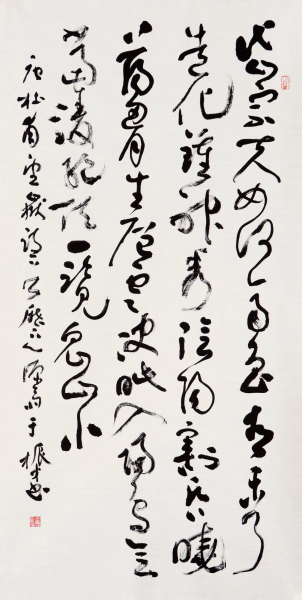 岱宗夫如何齊魯青未了
造化鍾神秀陰陽割昏曉
蕩胸生層雲決眥入歸鳥會
當凌絕頂一覽眾山小
唐杜甫望嶽詩